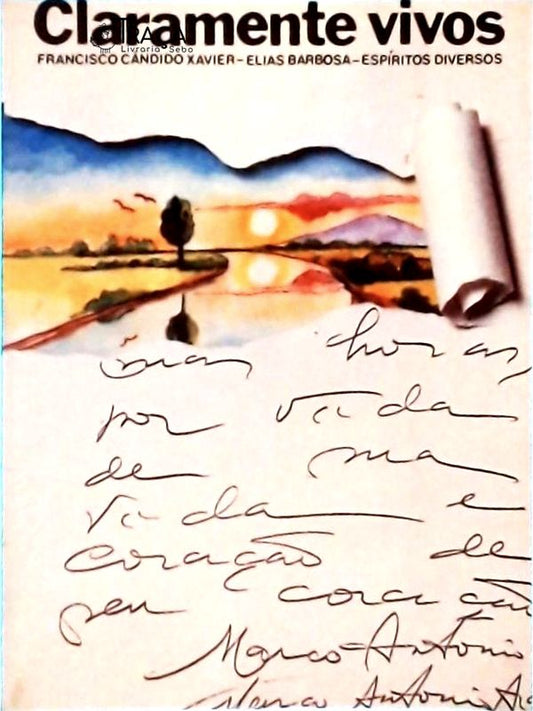 Claramente vivos
TRAÇA
Livraria e Sebo
FRANCISCO CÂNDIDO XAVIER – ELIAS BARBOSA – ESPÍRITOS DIVERSOS
horas,
por vida
de sua
vida e
coração de
seu coração
Marco Antônio
Marco Antonio